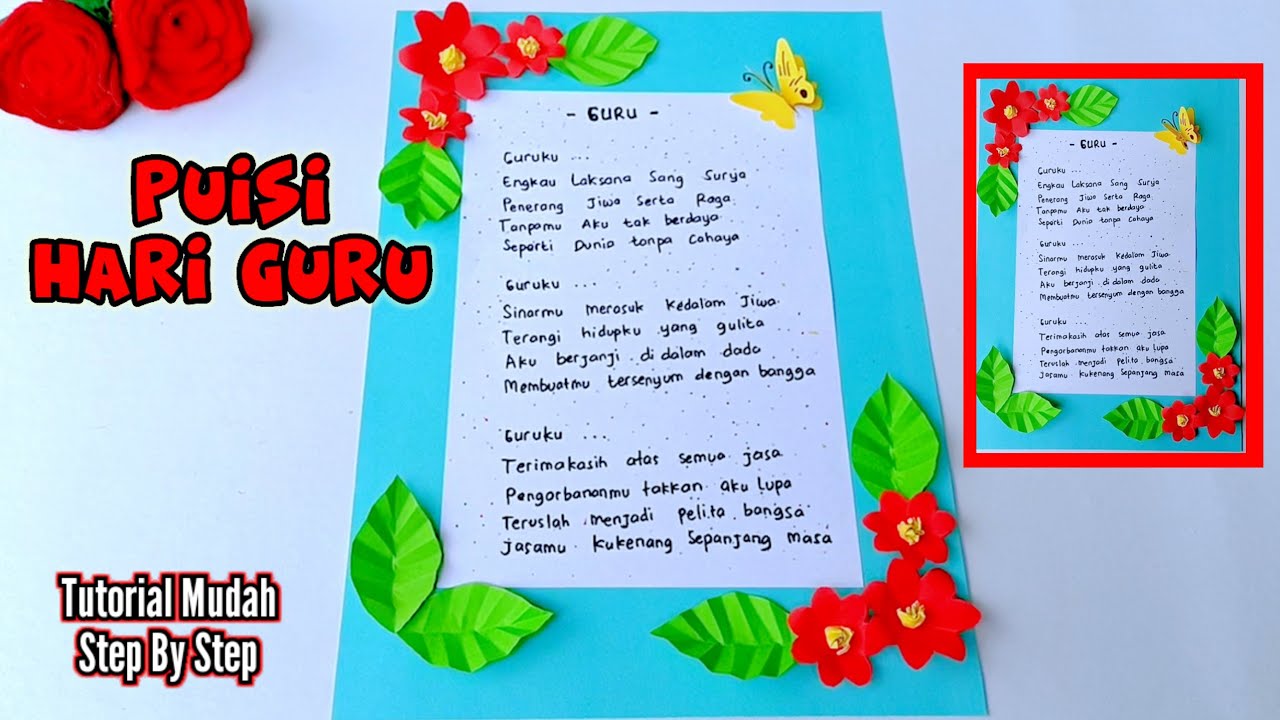 PUISI
HARI GURU
Tutorial Mudah
Step By Step
- GURU -
Guruku ...
Engkau Laksana Sang Surya
Penerang Jiwa Serta Raga
Tanpamu Aku tak berdaya
Seperti Dunia tanpa Cahaya
Guruku ...
Sinarmu merasuk Kedalam Jiwa
Terangi hidupku yang gulita
Aku berjanji di dalam dada
Membuatmu tersenyum dengan bangga
Guruku ...
Terimakasih atas semua jasa
Pengorbananmu takkan aku Lupa
Teruslah menjadi pelita bangsa
Jasamu Kukenang Sepanjang masa
- GURU -
Guruku ...
Engkau Laksana Sang Surya
Penerang Jiwa Serta Raga
Tanpamu Aku tak berdaya
Seperti Dunia tanpa Cahaya
Guruku ...
Sinarmu merasuk Kedalam Jiwa
Terangi hidupku yang gulita
Aku berjanji di dalam dada
Membuatmu tersenyum dengan bangga
Guruku ...
Terimakasih atas semua jasa
Pengorbananmu takkan aku Lupa
Teruslah menjadi pelita bangsa
Jasamu Kukenang Sepanjang masa